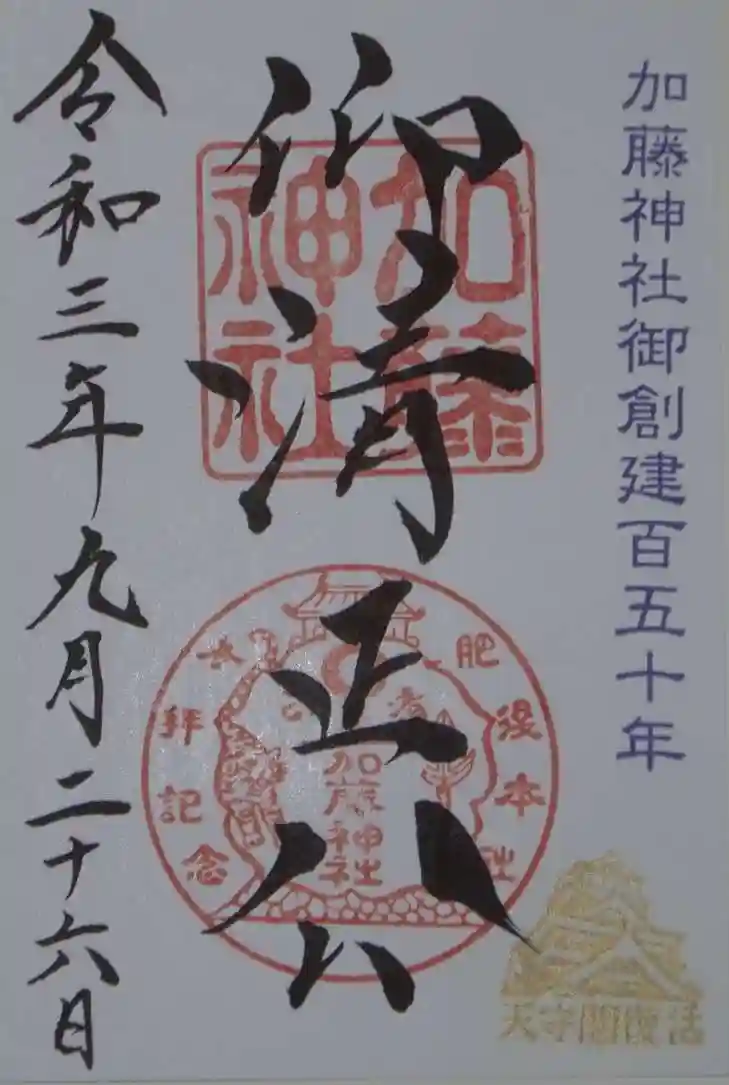 加藤神社御創建百五十年
仰清正公
加藤
神社
加藤神社
参拝記念
天守閣復活
令和三年九月二十六日